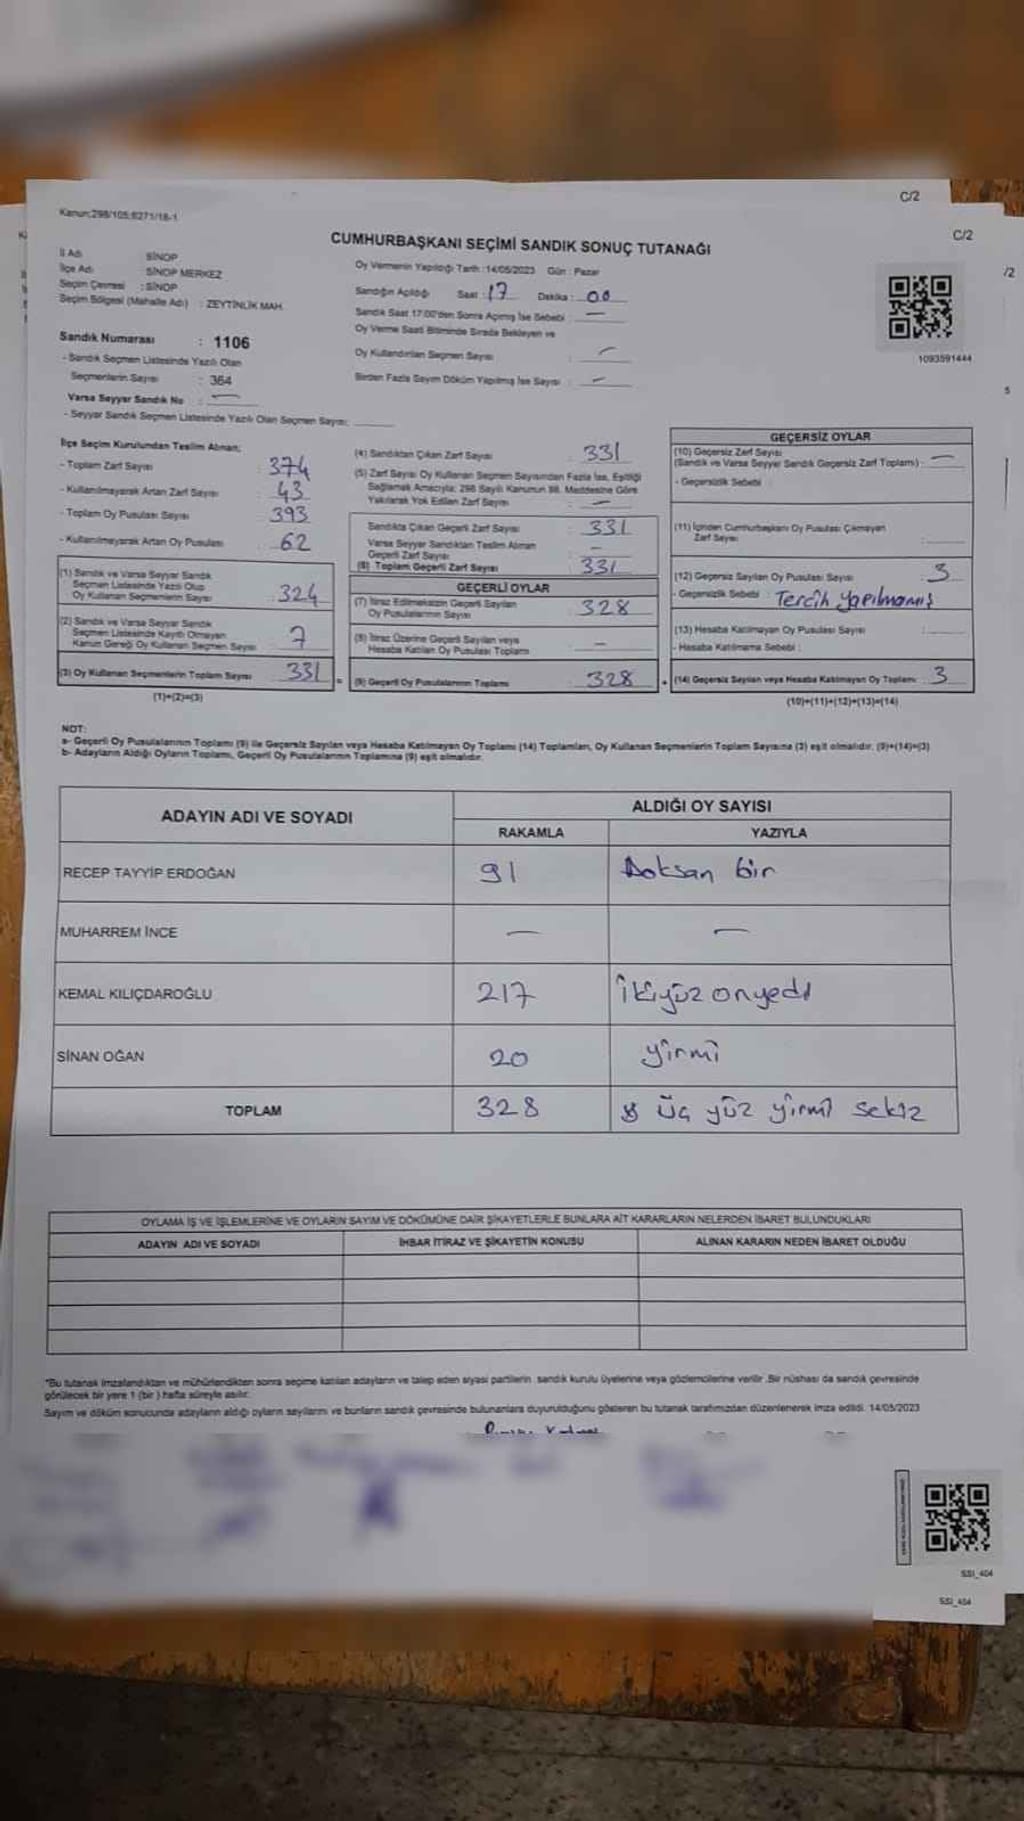 C/2
Kanun:298/105;6271/18-1
C/2
CUMHURBAŞKANI SEÇİMİ SANDIK SONUÇ TUTANAĞI
/2
İl Adı SİNOP
İlçe Adı SİNOP MERKEZ
Seçim Çevresi : SİNOP
Seçim Bölgesi (Mahalle Adı) : ZEYTİNLİK MAH.
Oy Vermenin Yapıldığı Tarih :14/05/2023 Gün : Pazar
Sandığın Açıldığı Saat : 17 Dakika : 00
Sandık Saat 17.00'den Sonra Açılmış İse Sebebi : —
Oy Verme Saati Bitiminde Sırada Bekleyen ve
Oy Kullandırılan Seçmen Sayısı : —
Birden Fazla Sayım Döküm Yapılmış İse Sayısı : —
1093591444
Sandık Numarası : 1106
- Sandık Seçmen Listesinde Yazılı Olan
Seçmenlerin Sayısı : 364
Varsa Seyyar Sandık No : —
- Seyyar Sandık Seçmen Listesinde Yazılı Olan Seçmen Sayısı:
5
İlçe Seçim Kurulundan Teslim Alınan;
- Toplam Zarf Sayısı : 374
- Kullanılmayarak Artan Zarf Sayısı : 43
- Toplam Oy Pusulası Sayısı : 393
- Kullanılmayarak Artan Oy Pusulası : 62
(1) Sandık ve Varsa Seyyar Sandık
Seçmen Listesinde Yazılı Olup
Oy Kullanan Seçmenlerin Sayısı : 324
(2) Sandık ve Varsa Seyyar Sandık
Seçmen Listesinde Kayıtlı Olmayan
Kanun Gereği Oy Kullanan Seçmen Sayısı : 7
(3) Oy Kullanan Seçmenlerin Toplam Sayısı : 331
(1)+(2)=(3)
(4) Sandıktan Çıkan Zarf Sayısı : 331
(5) Zarf Sayısı Oy Kullanan Seçmen Sayısından Fazla İse, Eşitliği
Sağlamak Amacıyla; 298 Sayılı Kanunun 98. Maddesine Göre
Yakılarak Yok Edilen Zarf Sayısı : —
Sandıkta Çıkan Geçerli Zarf Sayısı : 331
Varsa Seyyar Sandıktan Teslim Alınan
Geçerli Zarf Sayısı : —
(6) Toplam Geçerli Zarf Sayısı : 331
GEÇERLİ OYLAR
(7) İtiraz Edilmeksizin Geçerli Sayılan
Oy Pusulalarının Sayısı : 328
(8) İtiraz Üzerine Geçerli Sayılan veya
Hesaba Katılan Oy Pusulası Toplamı : —
= (9) Geçerli Oy Pusulalarının Toplamı : 328
GEÇERSİZ OYLAR
(10) Geçersiz Zarf Sayısı
(Sandık ve Varsa Seyyar Sandık Geçersiz Zarf Toplamı) : —
- Geçersizlik Sebebi :
(11) İçinden Cumhurbaşkanı Oy Pusulası Çıkmayan
Zarf Sayısı :
(12) Geçersiz Sayılan Oy Pusulası Sayısı : 3
- Geçersizlik Sebebi : Tercih yapılmamış
(13) Hesaba Katılmayan Oy Pusulası Sayısı :
- Hesaba Katılmama Sebebi :
+ (14) Geçersiz Sayılan veya Hesaba Katılmayan Oy Toplamı : 3
(10)+(11)+(12)+(13)=(14)
NOT:
a- Geçerli Oy Pusulalarının Toplamı (9) ile Geçersiz Sayılan veya Hesaba Katılmayan Oy Toplamı (14) Toplamları, Oy Kullanan Seçmenlerin Toplam Sayısına (3) eşit olmalıdır. (9)+(14)=(3)
b- Adayların Aldığı Oyların Toplamı, Geçerli Oy Pusulalarının Toplamına (9) eşit olmalıdır.
ADAYIN ADI VE SOYADI ALDIĞI OY SAYISI
RAKAMLA YAZIYLA
RECEP TAYYİP ERDOĞAN 91 Doksan bir
MUHARREM İNCE — —
KEMAL KILIÇDAROĞLU 217 İkiyüz onyedi
SİNAN OĞAN 20 yirmi
TOPLAM 328 üç yüz yirmi sekiz
OYLAMA İŞ VE İŞLEMLERİNE VE OYLARIN SAYIM VE DÖKÜMÜNE DAİR ŞİKAYETLERLE BUNLARA AİT KARARLARIN NELERDEN İBARET BULUNDUKLARI
ADAYIN ADI VE SOYADI İHBAR İTİRAZ VE ŞİKAYETİN KONUSU ALINAN KARARIN NEDEN İBARET OLDUĞU
"Bu tutanak imzalandıktan ve mühürlendikten sonra seçime katılan adayların ve talep eden siyasi partilerin sandık kurulu üyelerine veya gözlemcilerine verilir. Bir nüshası da sandık çevresinde
görülecek bir yere 1 (bir ) hafta süreyle asılır.
Sayım ve döküm sonucunda adayların aldığı oyların sayılarını ve bunların sandık çevresinde bulunanlara duyurulduğunu gösteren bu tutanak tarafımızdan düzenlenerek imza edildi. 14/05/2023
SSI_404
SSI_404